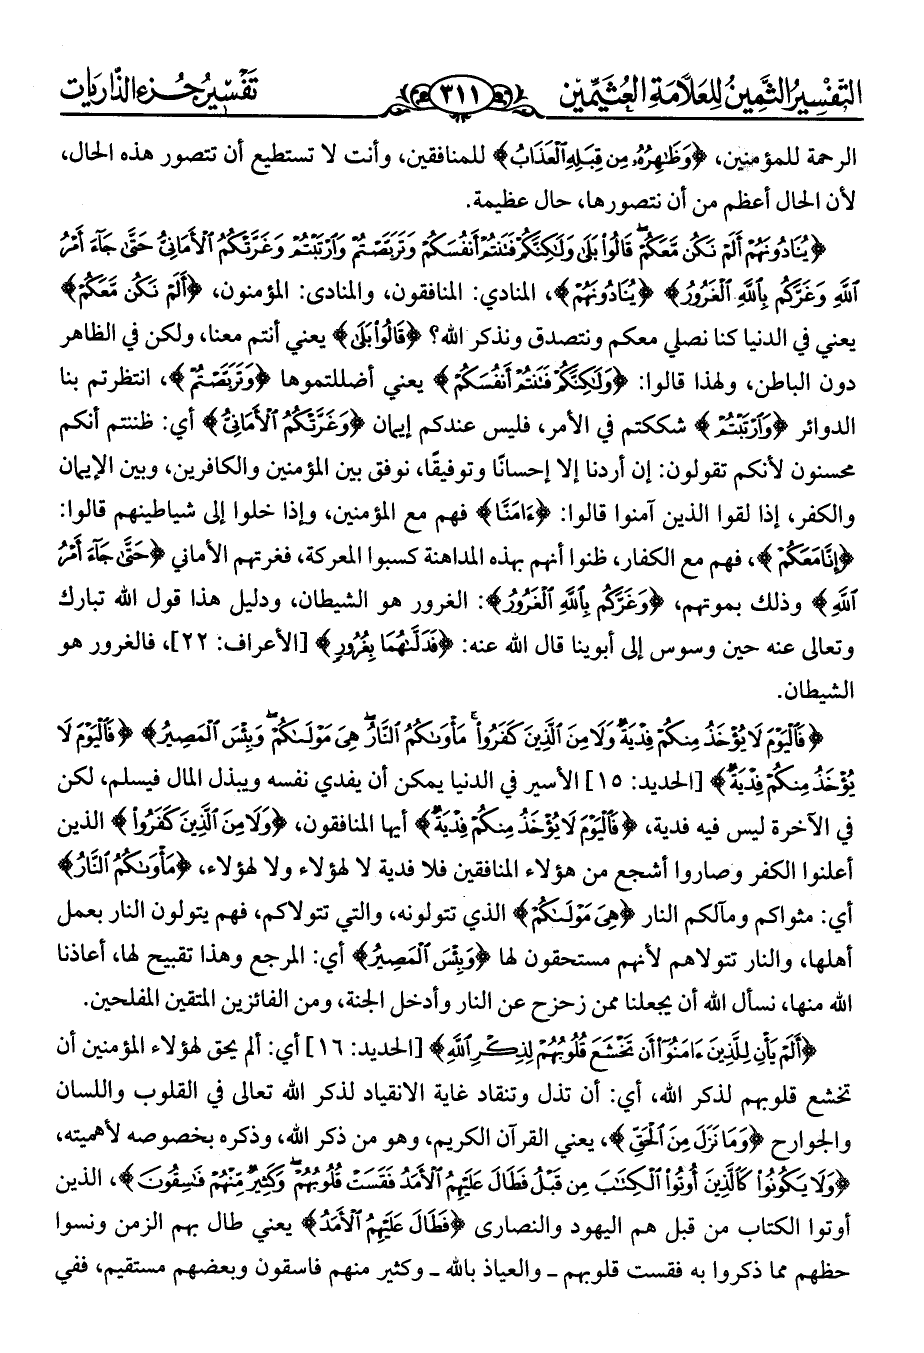 التفسير الثمين للعلامة العثيمين ٣١١ تفسير جزء الذاريات
الرحمة للمؤمنين، ﴿وَظَٰهِرُهُۥ مِن قِبَلِهِ ٱلْعَذَابُ﴾ للمنافقين، وأنت لا تستطيع أن تتصور هذه الحال،
لأن الحال أعظم من أن نتصورها، حال عظيمة.
﴿يُنَادُونَهُمْ أَلَمْ نَكُن مَّعَكُمْ ۖ قَالُوا۟ بَلَىٰ وَلَٰكِنَّكُمْ فَتَنتُمْ أَنفُسَكُمْ وَتَرَبَّصْتُمْ وَٱرْتَبْتُمْ وَغَرَّتْكُمُ ٱلْأَمَانِىُّ حَتَّىٰ جَآءَ أَمْرُ
ٱللَّهِ وَغَرَّكُم بِٱللَّهِ ٱلْغَرُورُ﴾ ﴿يُنَادُونَهُمْ﴾، المنادي: المنافقون، والمنادى: المؤمنون، ﴿أَلَمْ نَكُن مَّعَكُمْ﴾
يعني في الدنيا كنا نصلي معكم ونتصدق ونذكر الله؟ ﴿قَالُوا۟ بَلَىٰ﴾ يعني أنتم معنا، ولكن في الظاهر
دون الباطن، ولهذا قالوا: ﴿وَلَٰكِنَّكُمْ فَتَنتُمْ أَنفُسَكُمْ﴾ يعني أضللتموها ﴿وَتَرَبَّصْتُمْ﴾، انتظرتم بنا
الدوائر ﴿وَٱرْتَبْتُمْ﴾ شككتم في الأمر، فليس عندكم إيمان ﴿وَغَرَّتْكُمُ ٱلْأَمَانِىُّ﴾ أي: ظننتم أنكم
محسنون لأنكم تقولون: إن أردنا إلا إحسانًا وتوفيقًا، نوفق بين المؤمنين والكافرين، وبين الإيمان
والكفر، إذا لقوا الذين آمنوا قالوا: ﴿ءَامَنَّا﴾ فهم مع المؤمنين، وإذا خلوا إلى شياطينهم قالوا:
﴿إِنَّا مَعَكُمْ﴾، فهم مع الكفار، ظنوا أنهم بهذه المداهنة كسبوا المعركة، فغرتهم الأماني ﴿حَتَّىٰ جَآءَ أَمْرُ
ٱللَّهِ﴾ وذلك بموتهم، ﴿وَغَرَّكُم بِٱللَّهِ ٱلْغَرُورُ﴾: الغرور هو الشيطان، ودليل هذا قول الله تبارك
وتعالى عنه حين وسوس إلى أبوينا قال الله عنه: ﴿فَدَلَّىٰهُمَا بِغُرُورٍ﴾ [الأعراف: ٢٢]، فالغرور هو
الشيطان.
﴿فَٱلْيَوْمَ لَا يُؤْخَذُ مِنكُمْ فِدْيَةٌ وَلَا مِنَ ٱلَّذِينَ كَفَرُوا۟ ۚ مَأْوَىٰكُمُ ٱلنَّارُ ۖ هِىَ مَوْلَىٰكُمْ ۖ وَبِئْسَ ٱلْمَصِيرُ﴾ ﴿فَٱلْيَوْمَ لَا
يُؤْخَذُ مِنكُمْ فِدْيَةٌ﴾ [الحديد: ١٥] الأسير في الدنيا يمكن أن يفدي نفسه ويبذل المال فيسلم، لكن
في الآخرة ليس فيه فدية، ﴿فَٱلْيَوْمَ لَا يُؤْخَذُ مِنكُمْ فِدْيَةٌ﴾ أيها المنافقون، ﴿وَلَا مِنَ ٱلَّذِينَ كَفَرُوا۟﴾ الذين
أعلنوا الكفر وصاروا أشجع من هؤلاء المنافقين فلا فدية لا لهؤلاء ولا لهؤلاء، ﴿مَأْوَىٰكُمُ ٱلنَّارُ﴾
أي: مثواكم ومآلكم النار ﴿هِىَ مَوْلَىٰكُمْ﴾ الذي تتولونه، والتي تتولاكم، فهم يتولون النار بعمل
أهلها، والنار تتولاهم لأنهم مستحقون لها ﴿وَبِئْسَ ٱلْمَصِيرُ﴾ أي: المرجع وهذا تقبيح لها، أعاذنا
الله منها، نسأل الله أن يجعلنا ممن زحزح عن النار وأدخل الجنة، ومن الفائزين المتقين المفلحين.
﴿أَلَمْ يَأْنِ لِلَّذِينَ ءَامَنُوٓا۟ أَن تَخْشَعَ قُلُوبُهُمْ لِذِكْرِ ٱللَّهِ﴾ [الحديد: ١٦] أي: ألم يحق لهؤلاء المؤمنين أن
تخشع قلوبهم لذكر الله، أي: أن تذل وتنقاد غاية الانقياد لذكر الله تعالى في القلوب واللسان
والجوارح ﴿وَمَا نَزَلَ مِنَ ٱلْحَقِّ﴾، يعني القرآن الكريم، وهو من ذكر الله، وذكره بخصوصه لأهميته،
﴿وَلَا يَكُونُوا۟ كَٱلَّذِينَ أُوتُوا۟ ٱلْكِتَٰبَ مِن قَبْلُ فَطَالَ عَلَيْهِمُ ٱلْأَمَدُ فَقَسَتْ قُلُوبُهُمْ ۖ وَكَثِيرٌ مِّنْهُمْ فَٰسِقُونَ﴾، الذين
أوتوا الكتاب من قبل هم اليهود والنصارى ﴿فَطَالَ عَلَيْهِمُ ٱلْأَمَدُ﴾ يعني طال بهم الزمن ونسوا
حظهم مما ذكروا به فقست قلوبهم ـ والعياذ بالله ـ وكثير منهم فاسقون وبعضهم مستقيم، ففي